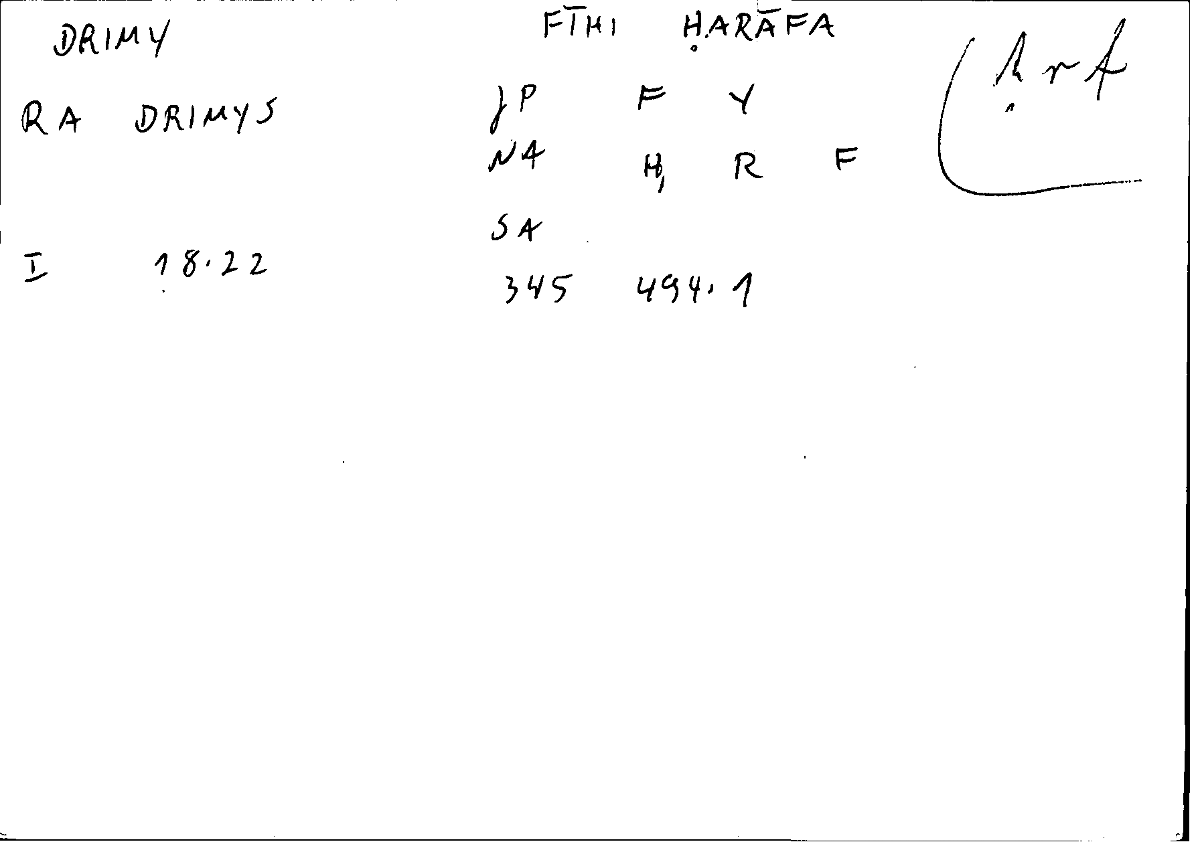 DRIMY FĪHI ḤARĀFA
ḥrf
RA DRIMYS JP F Y
NA Ḥ R F
SA
I 18.22 345 494.1